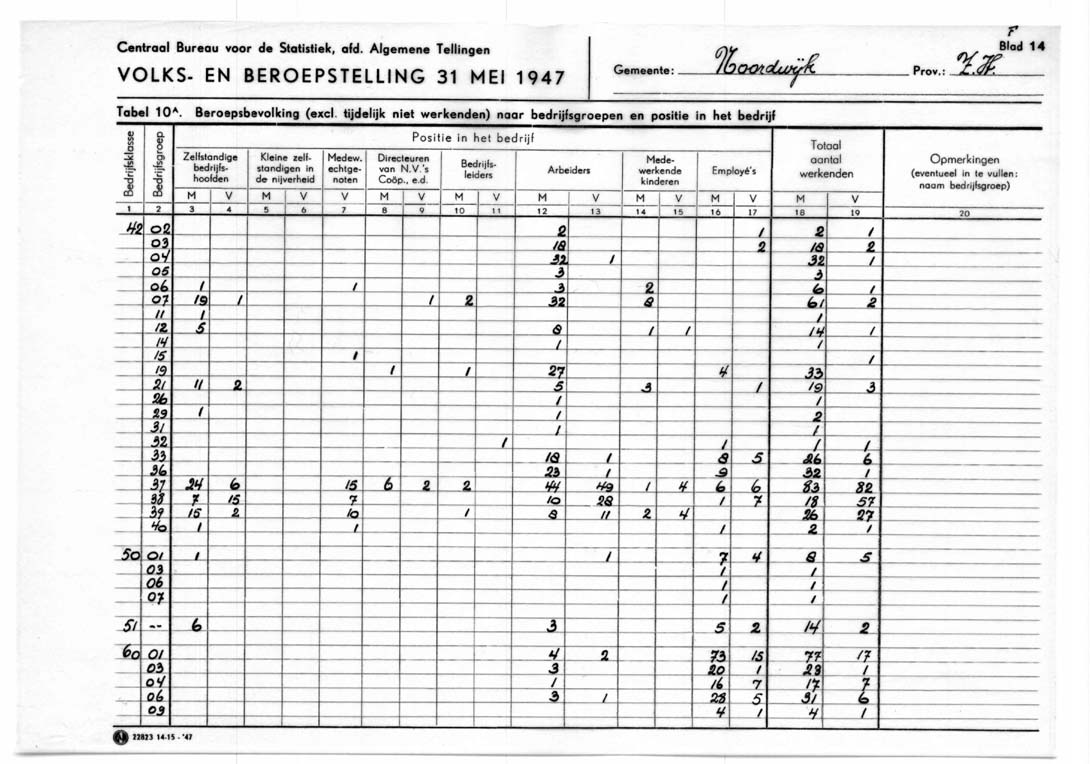 F
Blad 14
Centraal Bureau voor de Statistiek, afd. Algemene Tellingen
VOLKS- EN BEROEPSTELLING 31 MEI 1947
Gemeente: Noordwijk Prov.: Z.H.
Tabel 10A. Beroepsbevolking (excl. tijdelijk niet werkenden) naar bedrijfsgroepen en positie in het bedrijf
Bedrijfsklasse
Bedrijfsgroep
Positie in het bedrijf
Zelfstandige bedrijfs- hoofden
Kleine zelf- standigen in de nijverheid
Medew. echtge- noten
Directeuren van N.V.'s Coöp., e.d.
Bedrijfs- leiders
Arbeiders
Mede- werkende kinderen
Employé's
Totaal aantal werkenden
Opmerkingen (eventueel in te vullen: naam bedrijfsgroep)
M V M V V M V M V M V M V M V M V
1 2 3 4 5 6 7 8 9 10 11 12 13 14 15 16 17 18 19 20
42 02 2 1 2 1
03 18 2 18 2
04 32 1 32 1
05 3 3
06 1 1 3 2 6 1
07 19 1 1 2 32 8 61 2
11 1 1
12 5 8 1 1 14 1
14 1 1
15 1 1
19 1 1 27 4 33
21 11 2 5 3 1 19 3
26 1 1
29 1 1 2
31 1 1
32 1 1 1 1
33 18 1 8 5 26 6
36 23 1 9 32 1
37 24 6 15 6 2 2 44 49 1 4 6 6 83 82
38 7 15 7 10 28 1 7 18 57
39 15 2 10 1 8 11 2 4 26 27
40 1 1 1 2 1
50 01 1 1 7 4 8 5
03 1 1
06 1 1
07 1 1
51 -- 6 3 5 2 14 2
60 01 4 2 73 15 77 17
03 3 20 1 23 1
04 1 16 7 17 7
06 3 1 28 5 31 6
09 4 1 4 1
22823 14-15 - '47